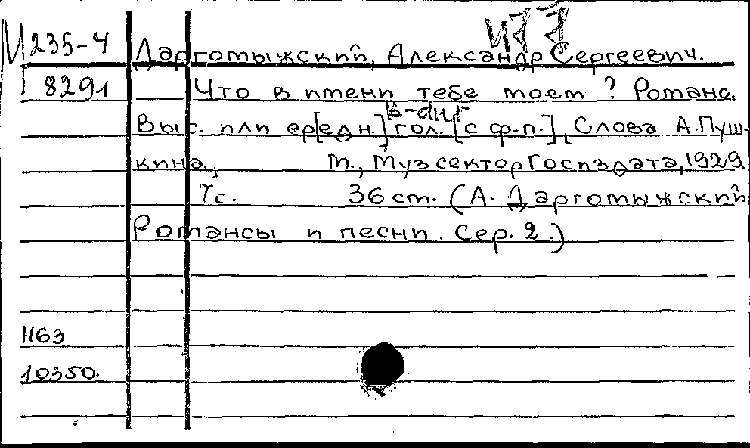 М 235-4 Даргомыжский, Александр Сергеевич.
8291 Что в имени тебе моем? Романс.
Выс. или ср[едн.] гол. [с ф-п.], Слова А.Пуш-
кина, М., Музсектор Госиздата, 1929
7с. 36 ст. (А. Даргомыжский
Романсы и песни. Сер. 2.)
1163
10350.